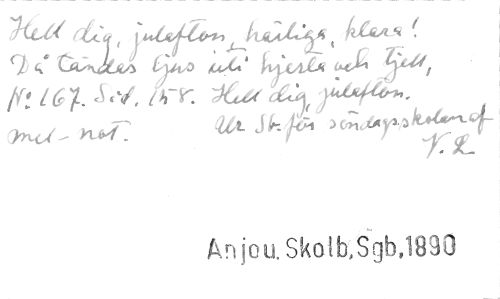 Hell dig, julafton, härliga, klara!
Då tändas ljus uti hjerta och tjell,
No 167. Sid. 158. Hell dig, julafton.
mel-not. Ur Sb. för söndagsskolan af
V. L.
Anjou. Skolb, Sgb, 1890